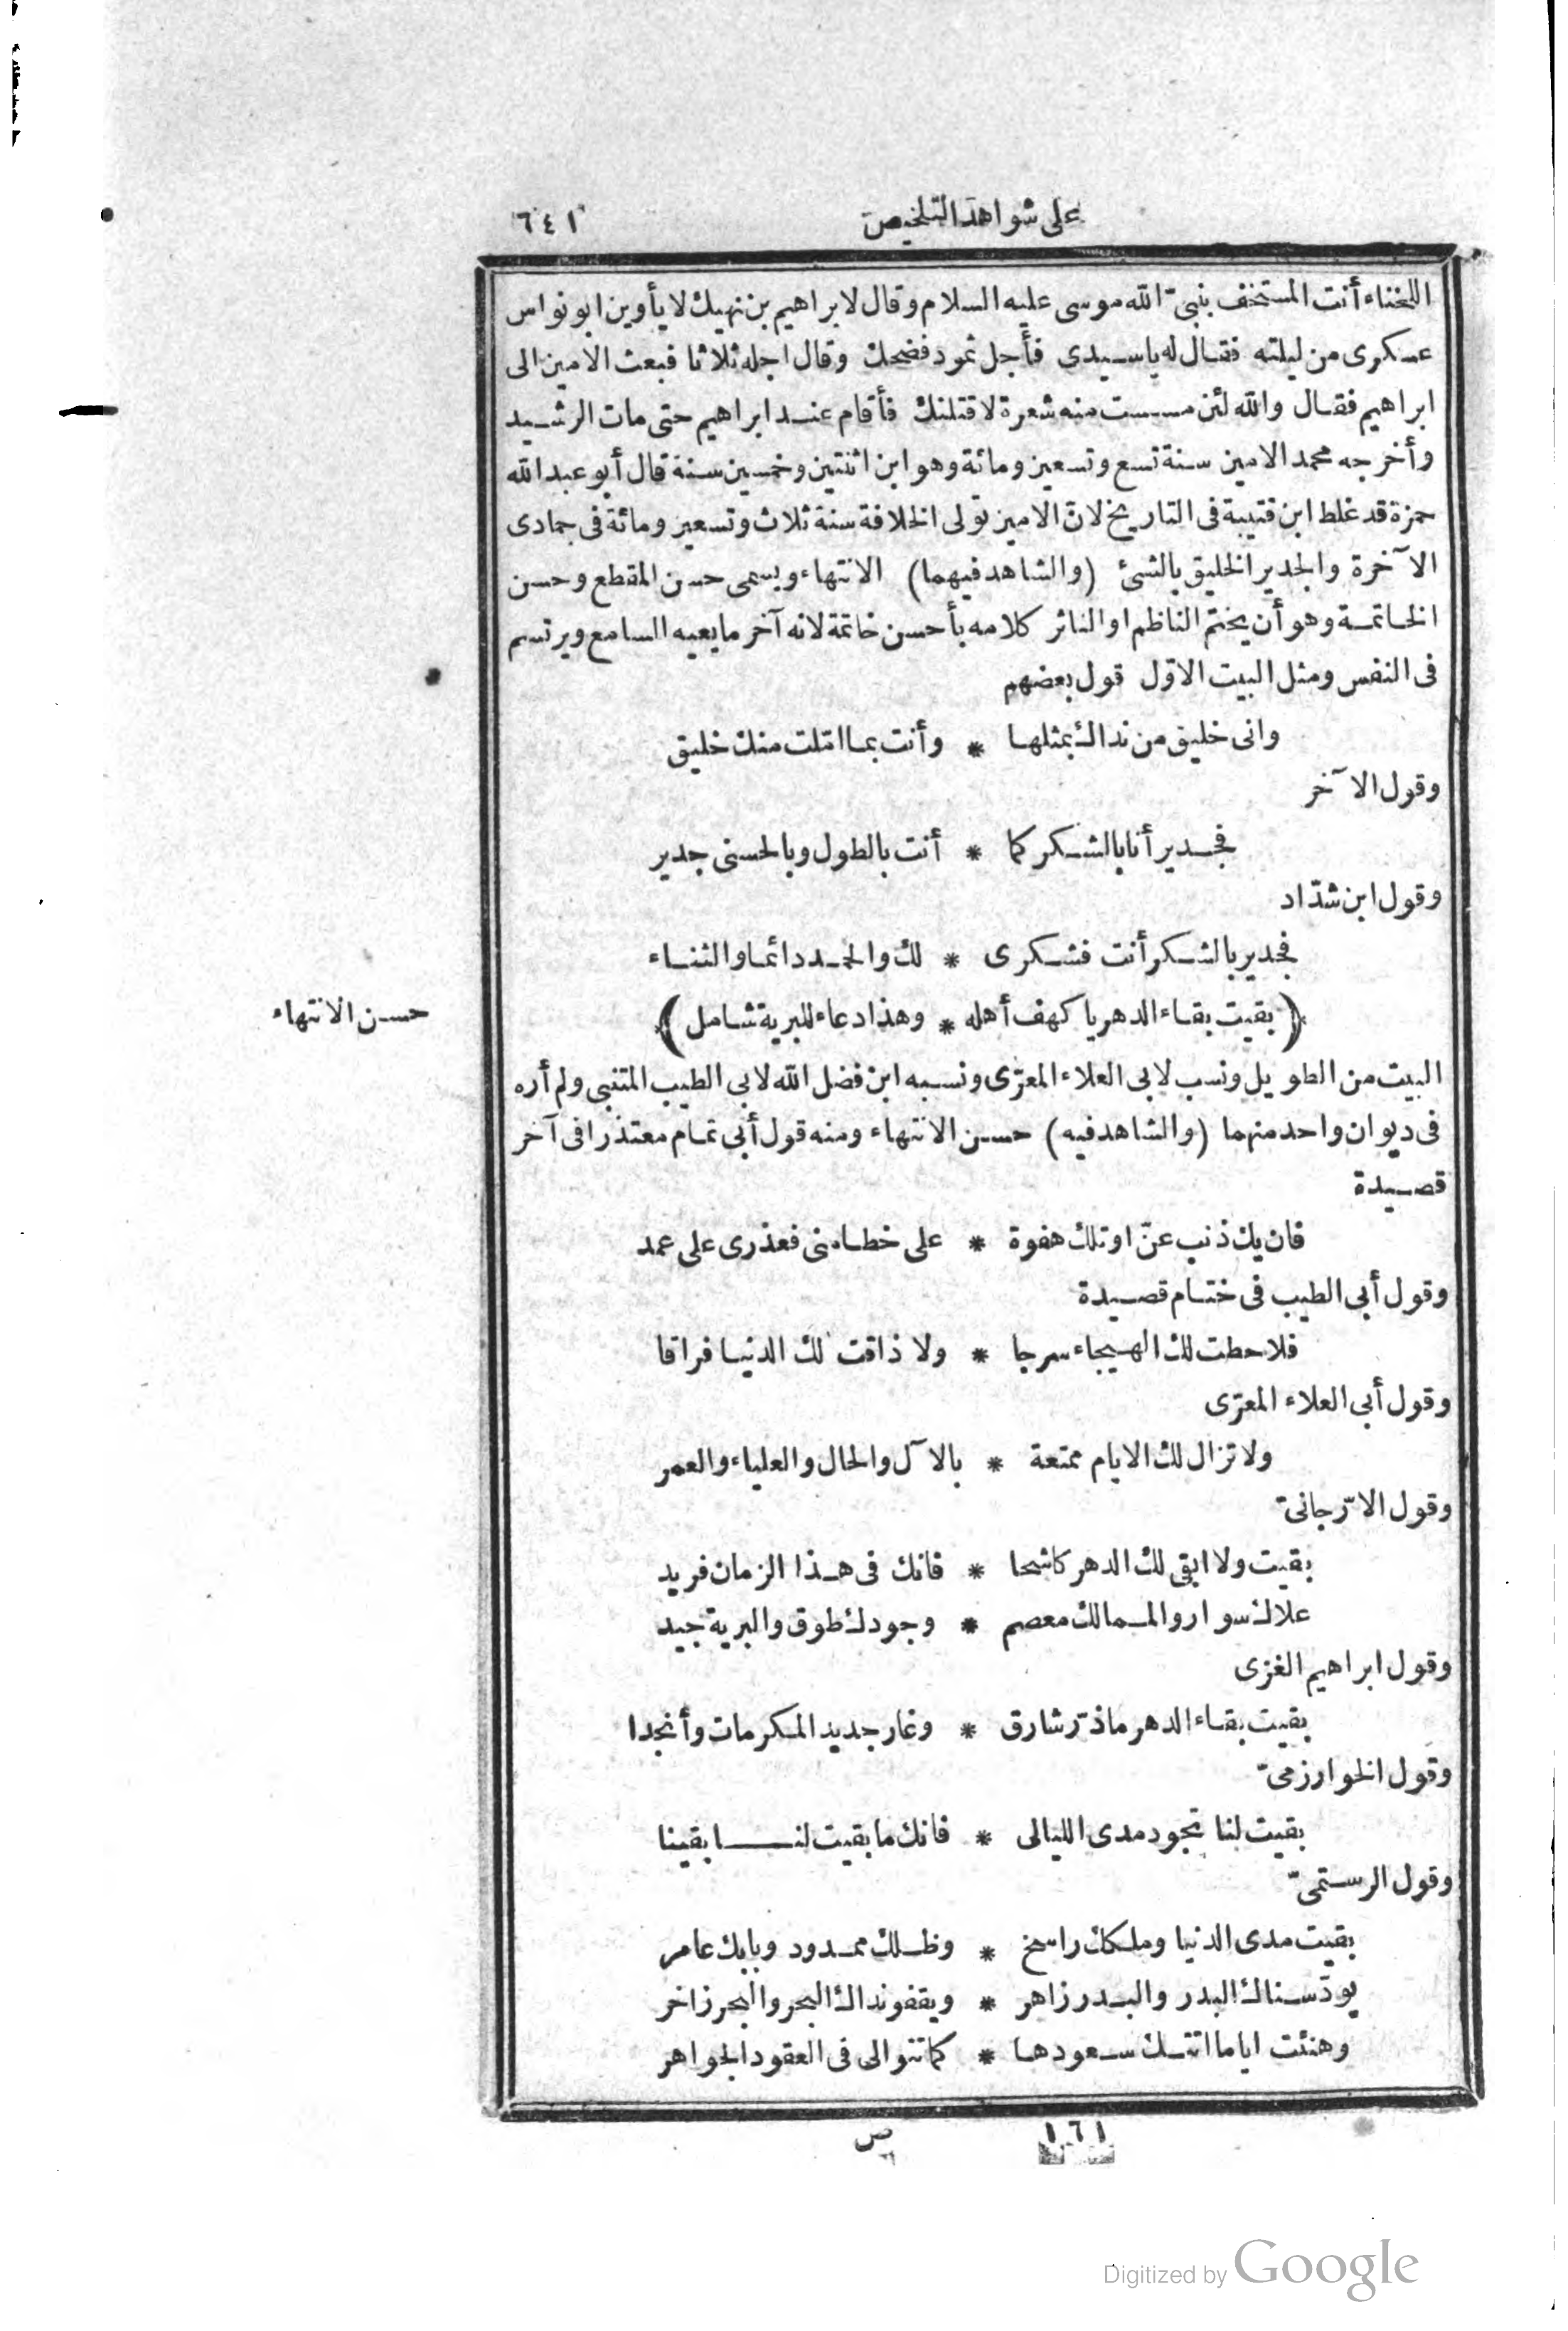 على شواهد التلخيص
٦٤١
اللخناء أنت المستخف بنبىّ الله موسى عليه السلام وقال لابراهيم بن نهيك لا يأوين ابو نواس
عسكرى من ليلته فقال له ياسيدى فأجل ثمود فضحك وقال اجله ثلاثا فبعث الامين الى
ابراهيم فقال والله لئن مسست منه شعرة لاقتلنك فأقام عند ابراهيم حتى مات الرشيد
وأخرجه محمد الامين سنة تسع وتسعين ومائة وهو ابن اثنتين وخمسين سنة قال أبو عبد الله
حمزة قد غلط ابن قتيبة فى التاريخ لانّ الامين تولى الخلافة سنة ثلاث وتسعين ومائة فى جمادى
الآخرة والجدير الخليق بالشئ (والشاهد فيهما) الانتهاء ويسمى حسن المقطع وحسن
الخاتمة وهو أن يختم الناظم او الناثر كلامه بأحسن خاتمة لانه آخر ما يعيه السامع ويرتسم
فى النفس ومثل البيت الاوّل قول بعضهم
وانى خليق من نداك بمثلها * وأنت بما املت منك خليق
وقول الآخر
فجدير أنا بالشكر كما * أنت بالطول وبالحسنى جدير
وقول ابن شدّاد
فجدير بالشكر أنت فشكرى * لك والحمد دائما والثناء
(بقيت بقاء الدهر يا كهف أهله * وهذا دعاء للبرية شامل)
حسن الانتهاء
البيت من الطويل ونسب لابى العلاء المعرّى ونسبه ابن فضل الله لابى الطيب المتنبى ولم أره
فى ديوان واحد منهما (والشاهد فيه) حسن الانتهاء ومنه قول أبى تمام معتذرا فى آخر
قصيدة
فان يك ذنب عنّ او تك هفوة * على خطا منى فعذرى على عمد
وقول أبى الطيب فى ختام قصيدة
فلا حطت لك الهيجاء سرجا * ولا ذاقت لك الدنيا فراقا
وقول أبى العلاء المعرّى
ولا تزال لك الايام ممتعة * بالآل والحال والعلياء والعمر
وقول الارّجانىّ
بقيت ولا ابقى لك الدهر كاشحا * فانك فى هذا الزمان فريد
علاك سوار والممالك معصم * وجودك طوق والبرية جيد
وقول ابراهيم الغزى
بقيت بقاء الدهر ماذرّ شارق * وغار جديد المكرمات وأنجدا
وقول الخوارزمىّ
بقيت لنا تجود مدى الليالى * فانك ما بقيت لنا بقينا
وقول الرستمىّ
بقيت مدى الدنيا وملكك راسخ * وظلك ممدود وبابك عامر
يودّ سناك البدر والبدر زاهر * ويقفو نداك البحر والبحر زاخر
وهنئت اياما اتتك سعودها * كما تتوالى فى العقود الجواهر
١٦١
ص
Digitized by Google